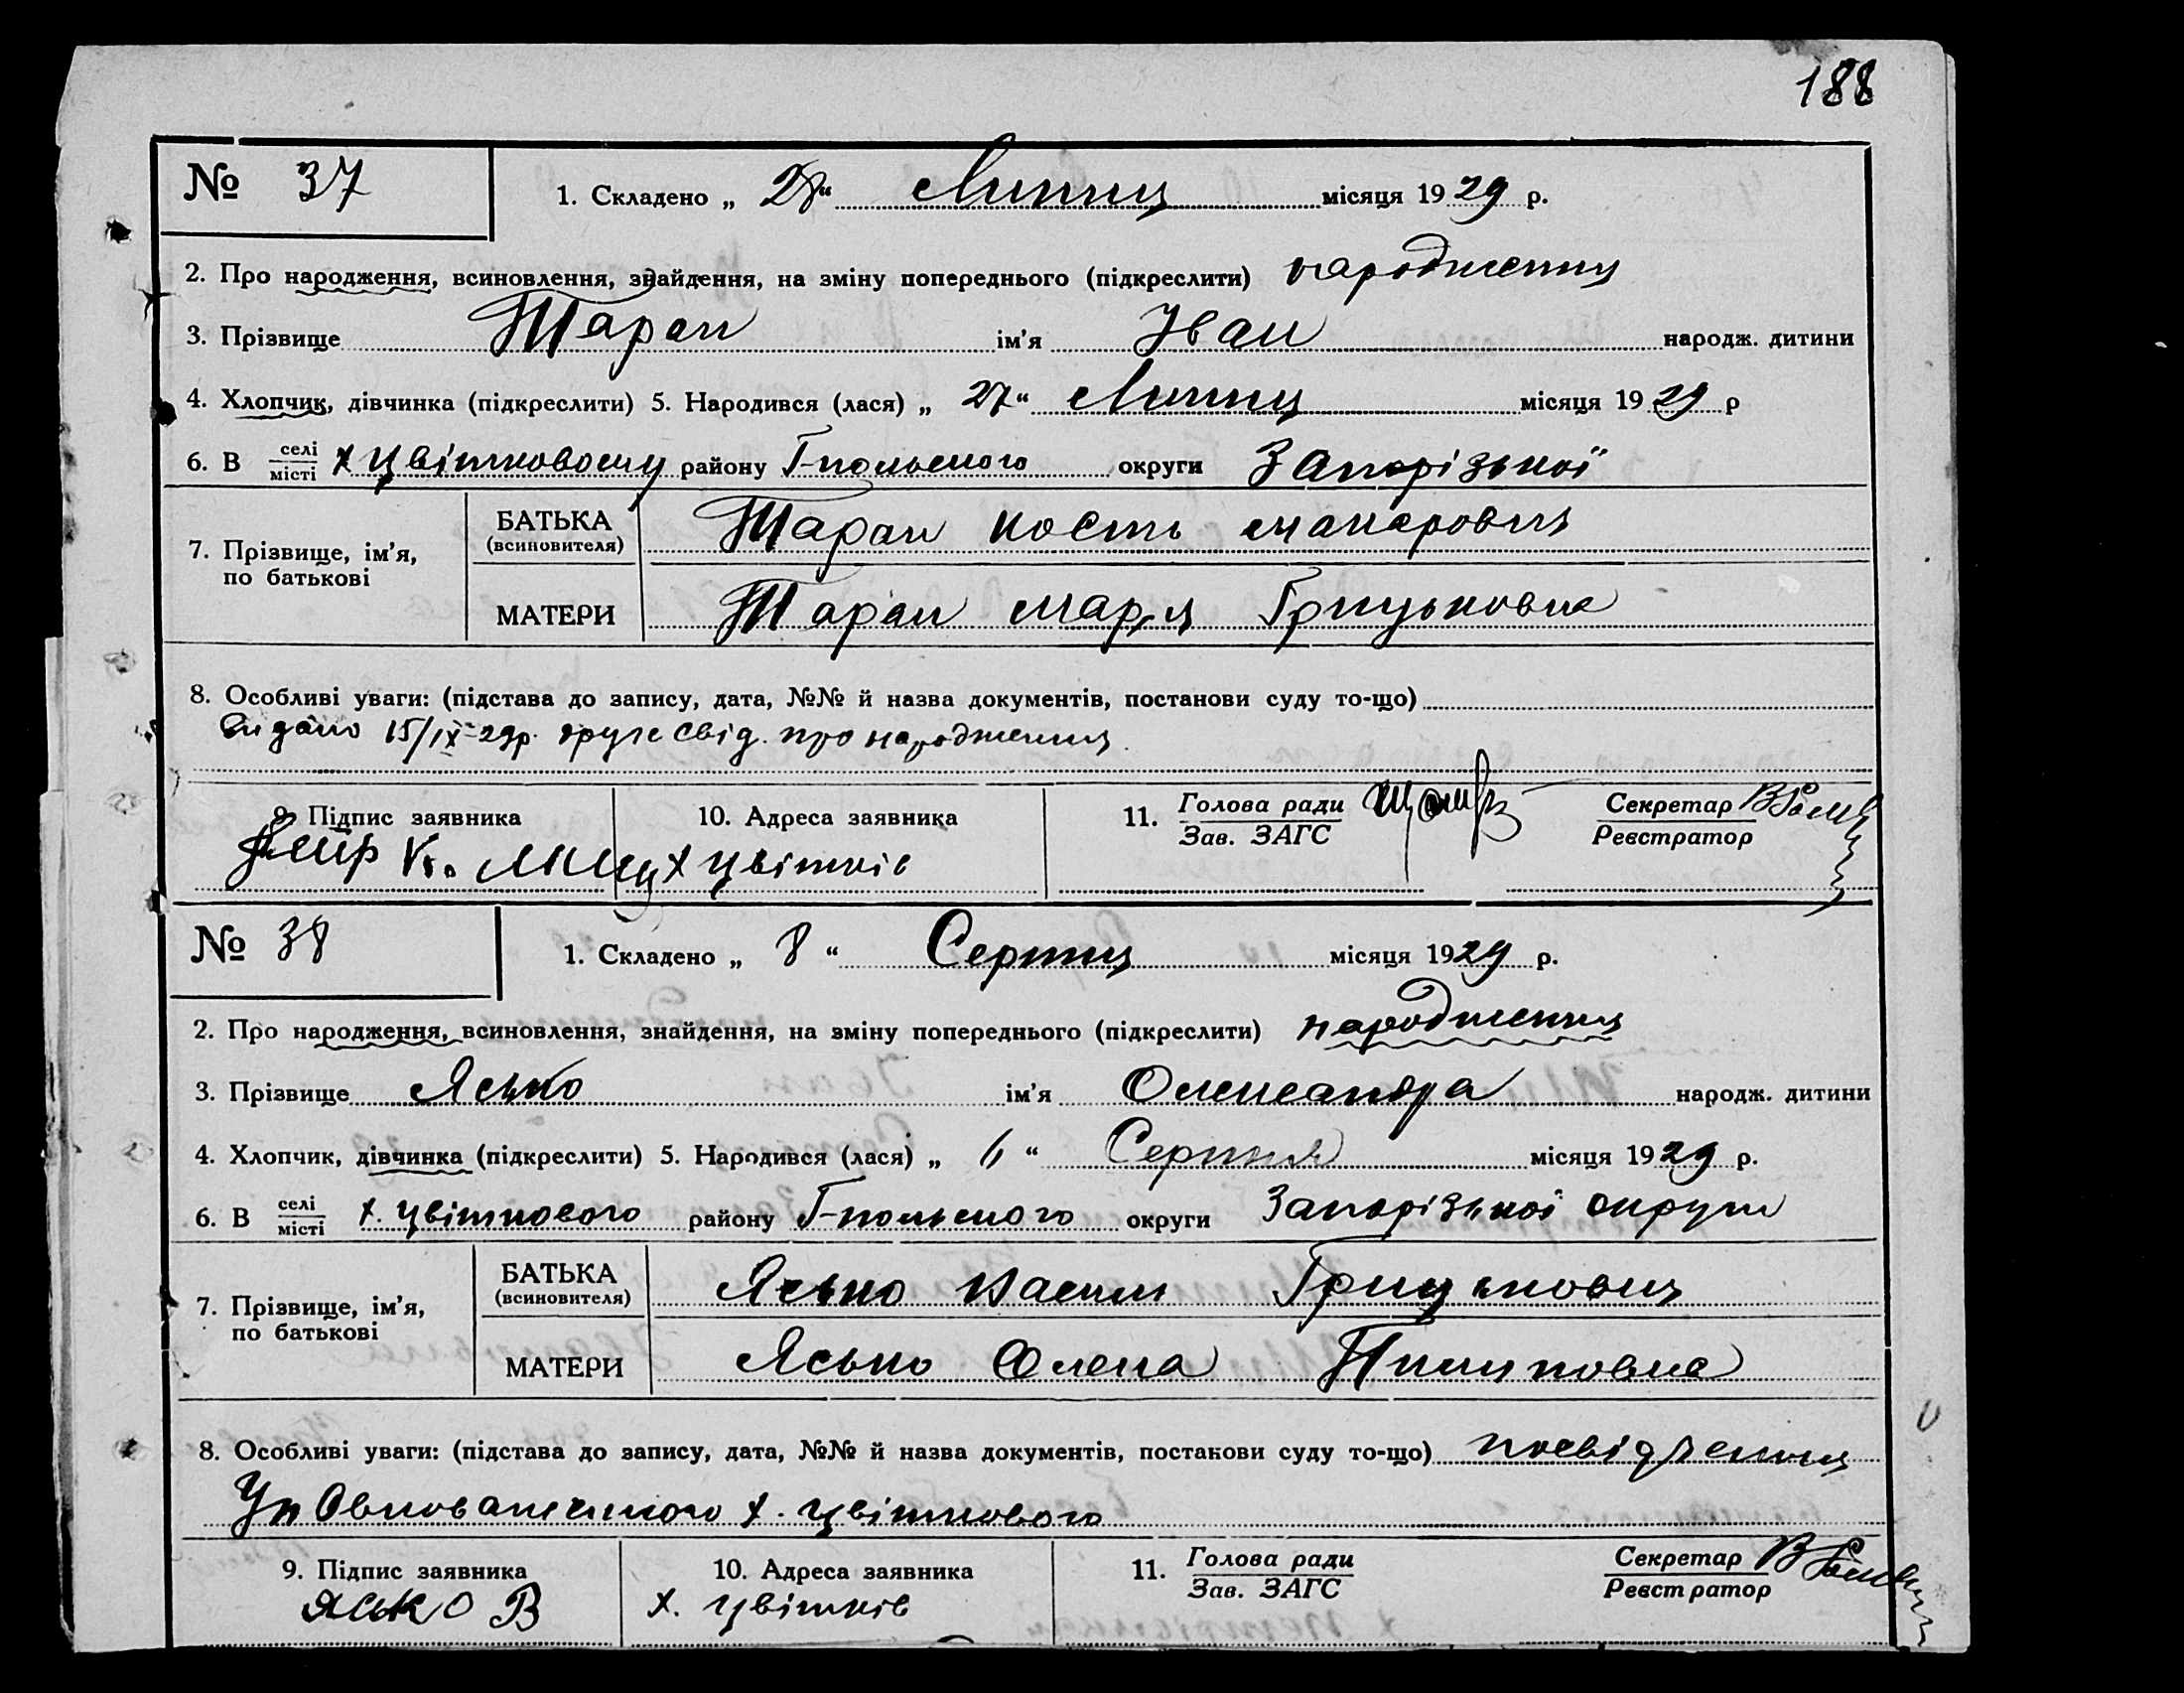 188
№ 37
1. Складено „ 28 “ Липня місяця 1929 р.
2. Про народження, всиновлення, знайдення, на зміну попереднього (підкреслити) народження
3. Прізвище Таран ім’я Іван народж. дитини
4. Хлопчик, дівчинка (підкреслити) 5. Народився (лася) „ 27 “ Липня місяця 1929 р
6. В селі/місті х Цвітковому району Г-польского округи Запорізької
7. Прізвище, ім’я, по батькові
БАТЬКА (всиновителя) Таран Кость Макарович
МАТЕРИ Таран Марія Грицьковна
8. Особливі уваги: (підстава до запису, дата, №№ й назва документів, постанови суду то-що)
Видано 15/IX-29р. друге свід. про народження.
9. Підпис заявника
10. Адреса заявника
11. Голова ради
Зав. ЗАГС
Секретар
Реєстратор
х Цвітків
№ 38
1. Складено „ 8 “ Серпня місяця 1929 р.
2. Про народження, всиновлення, знайдення, на зміну попереднього (підкреслити) народження
3. Прізвище Ясько ім’я Олександра народж. дитини
4. Хлопчик, дівчинка (підкреслити) 5. Народився (лася) „ 6 “ Серпня місяця 1929 р.
6. В селі/місті х. Цвіткового району Г-польского округи Запорізької округи
7. Прізвище, ім’я, по батькові
БАТЬКА (всиновителя) Ясько Василь Грицькович
МАТЕРИ Ясько Олена Пилиповна
8. Особливі уваги: (підстава до запису, дата, №№ й назва документів, постанови суду то-що) посвідчення
Уповноваженого х. Цвіткового
9. Підпис заявника
10. Адреса заявника
11. Голова ради
Зав. ЗАГС
Секретар
Реєстратор
Ясько В
х. Цвітків